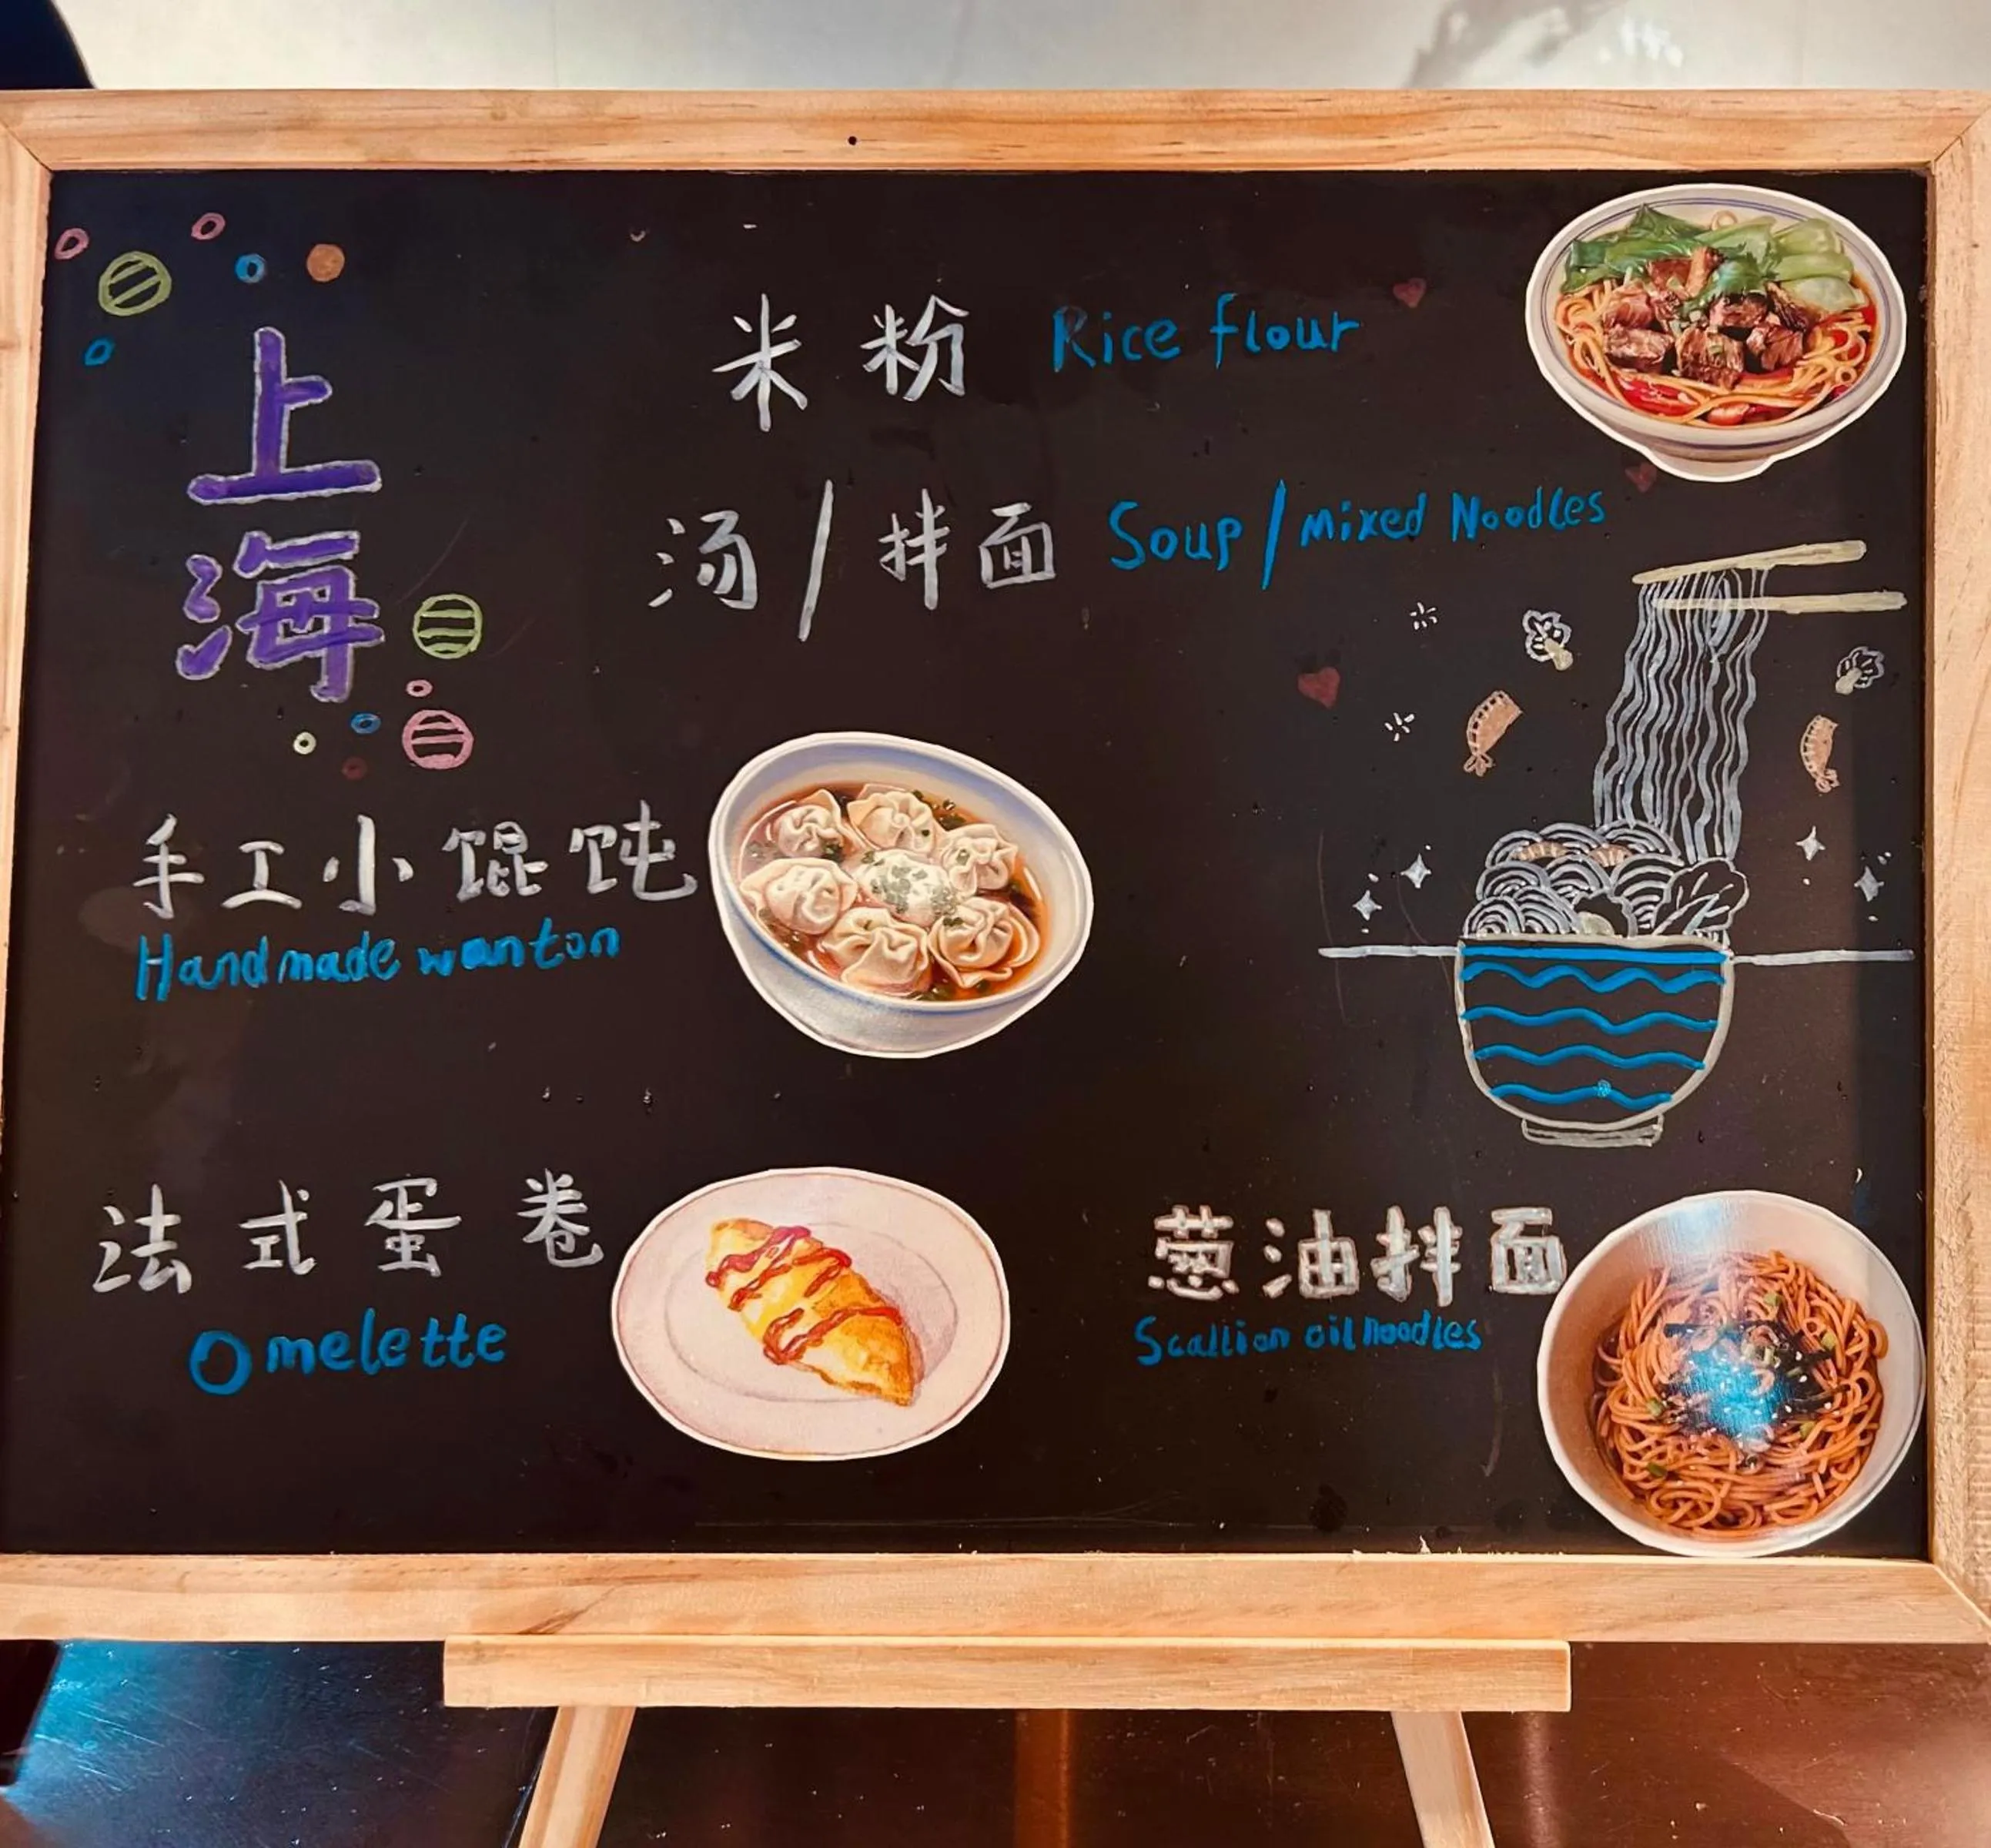 上海
米粉 Rice flour
汤/拌面 Soup/mixed Noodles
手工小馄饨
Handmade wanton
法式蛋卷
Omelette
葱油拌面
Scallion oil noodles